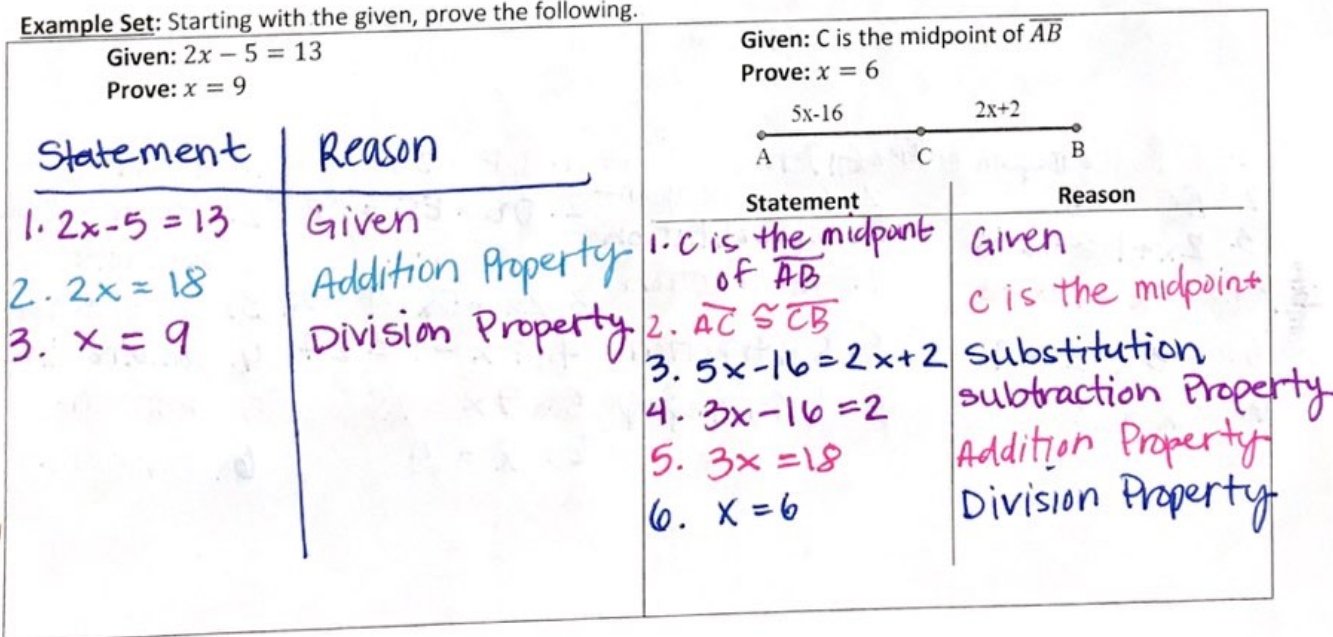 Example Set: Starting with the given, prove the following.
Given: 2x − 5 = 13
Prove: x = 9
Statement Reason
1. 2x-5 = 13 Given
2. 2x = 18 Addition Property
3. x = 9 Division Property
Given: C is the midpoint of A̅B̅
Prove: x = 6
5x-16 2x+2
A C B
Statement Reason
1. C is the midpont Given
of A̅B̅
2. A̅C̅ ≅ C̅B̅ C is the midpoint
3. 5x-16 = 2x+2 Substitution
4. 3x-16 = 2 Subtraction Property
5. 3x = 18 Addition Property
6. x = 6 Division Property